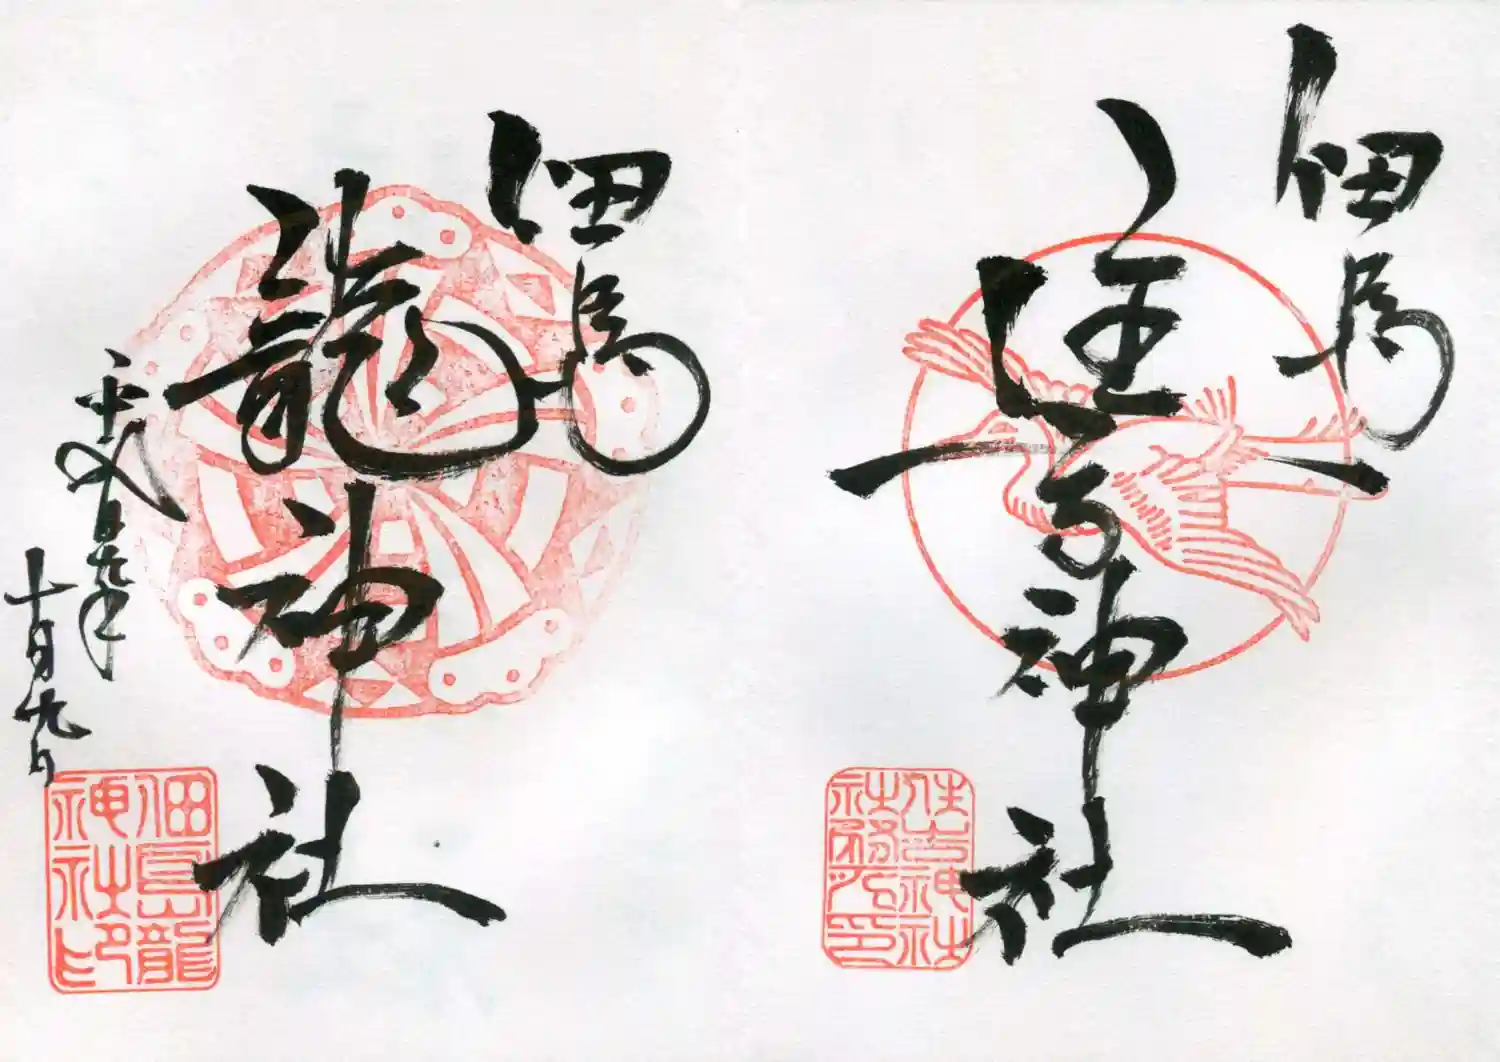 佃島
住吉神社
住吉神社
社務所印
佃島
龍神社
平成廿九年
十月九日
佃島龍
神社印